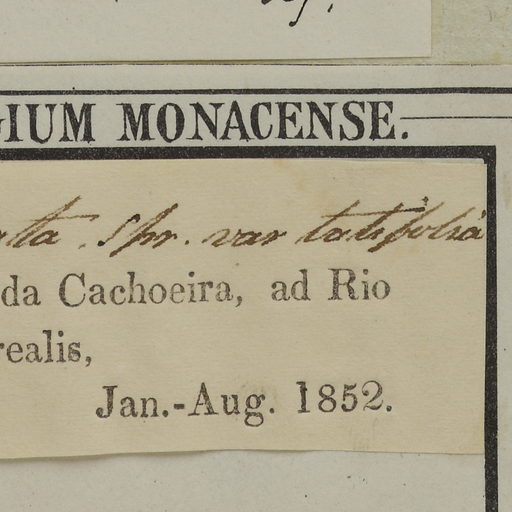 GIUM MONACENSE.
ata. Spr. var latifolia
da Cachoeira, ad Rio
realis,
Jan.-Aug. 1852.